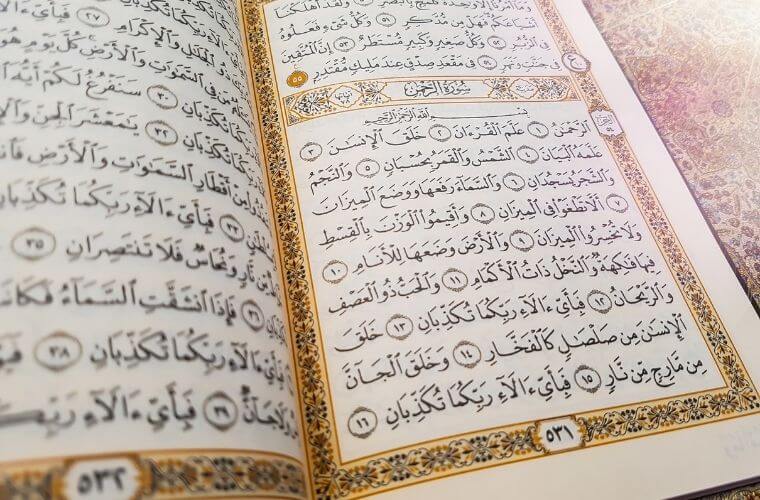 وَمَآ أَمْرُنَآ إِلَّا وَٰحِدَةٌ كَلَمْحٍۭ بِٱلْبَصَرِ ٥٠ وَلَقَدْ أَهْلَكْنَآ
أَشْيَاعَكُمْ فَهَلْ مِن مُّدَّكِرٍ ٥١ وَكُلُّ شَىْءٍ فَعَلُوهُ
فِى ٱلزُّبُرِ ٥٢ وَكُلُّ صَغِيرٍ وَكَبِيرٍ مُّسْتَطَرٌ ٥٣ إِنَّ ٱلْمُتَّقِينَ
فِى جَنَّٰتٍ وَنَهَرٍ ٥٤ فِى مَقْعَدِ صِدْقٍ عِندَ مَلِيكٍ مُّقْتَدِرٍۭ ٥٥
سُورَةُ الرَّحْمٰن
بِسْمِ ٱللَّهِ ٱلرَّحْمَٰنِ ٱلرَّحِيمِ
ٱلرَّحْمَٰنُ ١ عَلَّمَ ٱلْقُرْءَانَ ٢ خَلَقَ ٱلْإِنسَٰنَ ٣
عَلَّمَهُ ٱلْبَيَانَ ٤ ٱلشَّمْسُ وَٱلْقَمَرُ بِحُسْبَانٍ ٥ وَٱلنَّجْمُ
وَٱلشَّجَرُ يَسْجُدَانِ ٦ وَٱلسَّمَآءَ رَفَعَهَا وَوَضَعَ ٱلْمِيزَانَ
٧ أَلَّا تَطْغَوْا۟ فِى ٱلْمِيزَانِ ٨ وَأَقِيمُوا۟ ٱلْوَزْنَ بِٱلْقِسْطِ
وَلَا تُخْسِرُوا۟ ٱلْمِيزَانَ ٩ وَٱلْأَرْضَ وَضَعَهَا لِلْأَنَامِ ١٠
فِيهَا فَٰكِهَةٌ وَٱلنَّخْلُ ذَاتُ ٱلْأَكْمَامِ ١١ وَٱلْحَبُّ ذُو ٱلْعَصْفِ
وَٱلرَّيْحَانُ ١٢ فَبِأَىِّ ءَالَآءِ رَبِّكُمَا تُكَذِّبَانِ ١٣ خَلَقَ
ٱلْإِنسَٰنَ مِن صَلْصَٰلٍ كَٱلْفَخَّارِ ١٤ وَخَلَقَ ٱلْجَآنَّ
مِن مَّارِجٍ مِّن نَّارٍ ١٥ فَبِأَىِّ ءَالَآءِ رَبِّكُمَا تُكَذِّبَانِ ١٦
٥٣١
ٱلْجَلَٰلِ وَٱلْإِكْرَامِ ٢٧ فَبِأَىِّ
فِى ٱلسَّمَٰوَٰتِ وَٱلْأَرْضِ كُلَّ يَوْمٍ هُوَ
تُكَذِّبَانِ ٣٠ سَنَفْرُغُ لَكُمْ أَيُّهَ
رَبِّكُمَا تُكَذِّبَانِ ٣٢ يَٰمَعْشَرَ ٱلْجِنِّ
مِنْ أَقْطَارِ ٱلسَّمَٰوَٰتِ وَٱلْأَرْضِ
٣٣ فَبِأَىِّ ءَالَآءِ رَبِّكُمَا تُكَذِّبَانِ
مِّن نَّارٍ وَنُحَاسٌ فَلَا تَنتَصِرَانِ ٣٥
٣٦ فَإِذَا ٱنشَقَّتِ ٱلسَّمَآءُ فَكَانَتْ
ءَالَآءِ رَبِّكُمَا تُكَذِّبَانِ ٣٨
وَلَا جَآنٌّ ٣٩ فَبِأَىِّ ءَالَآءِ
٥٣٢